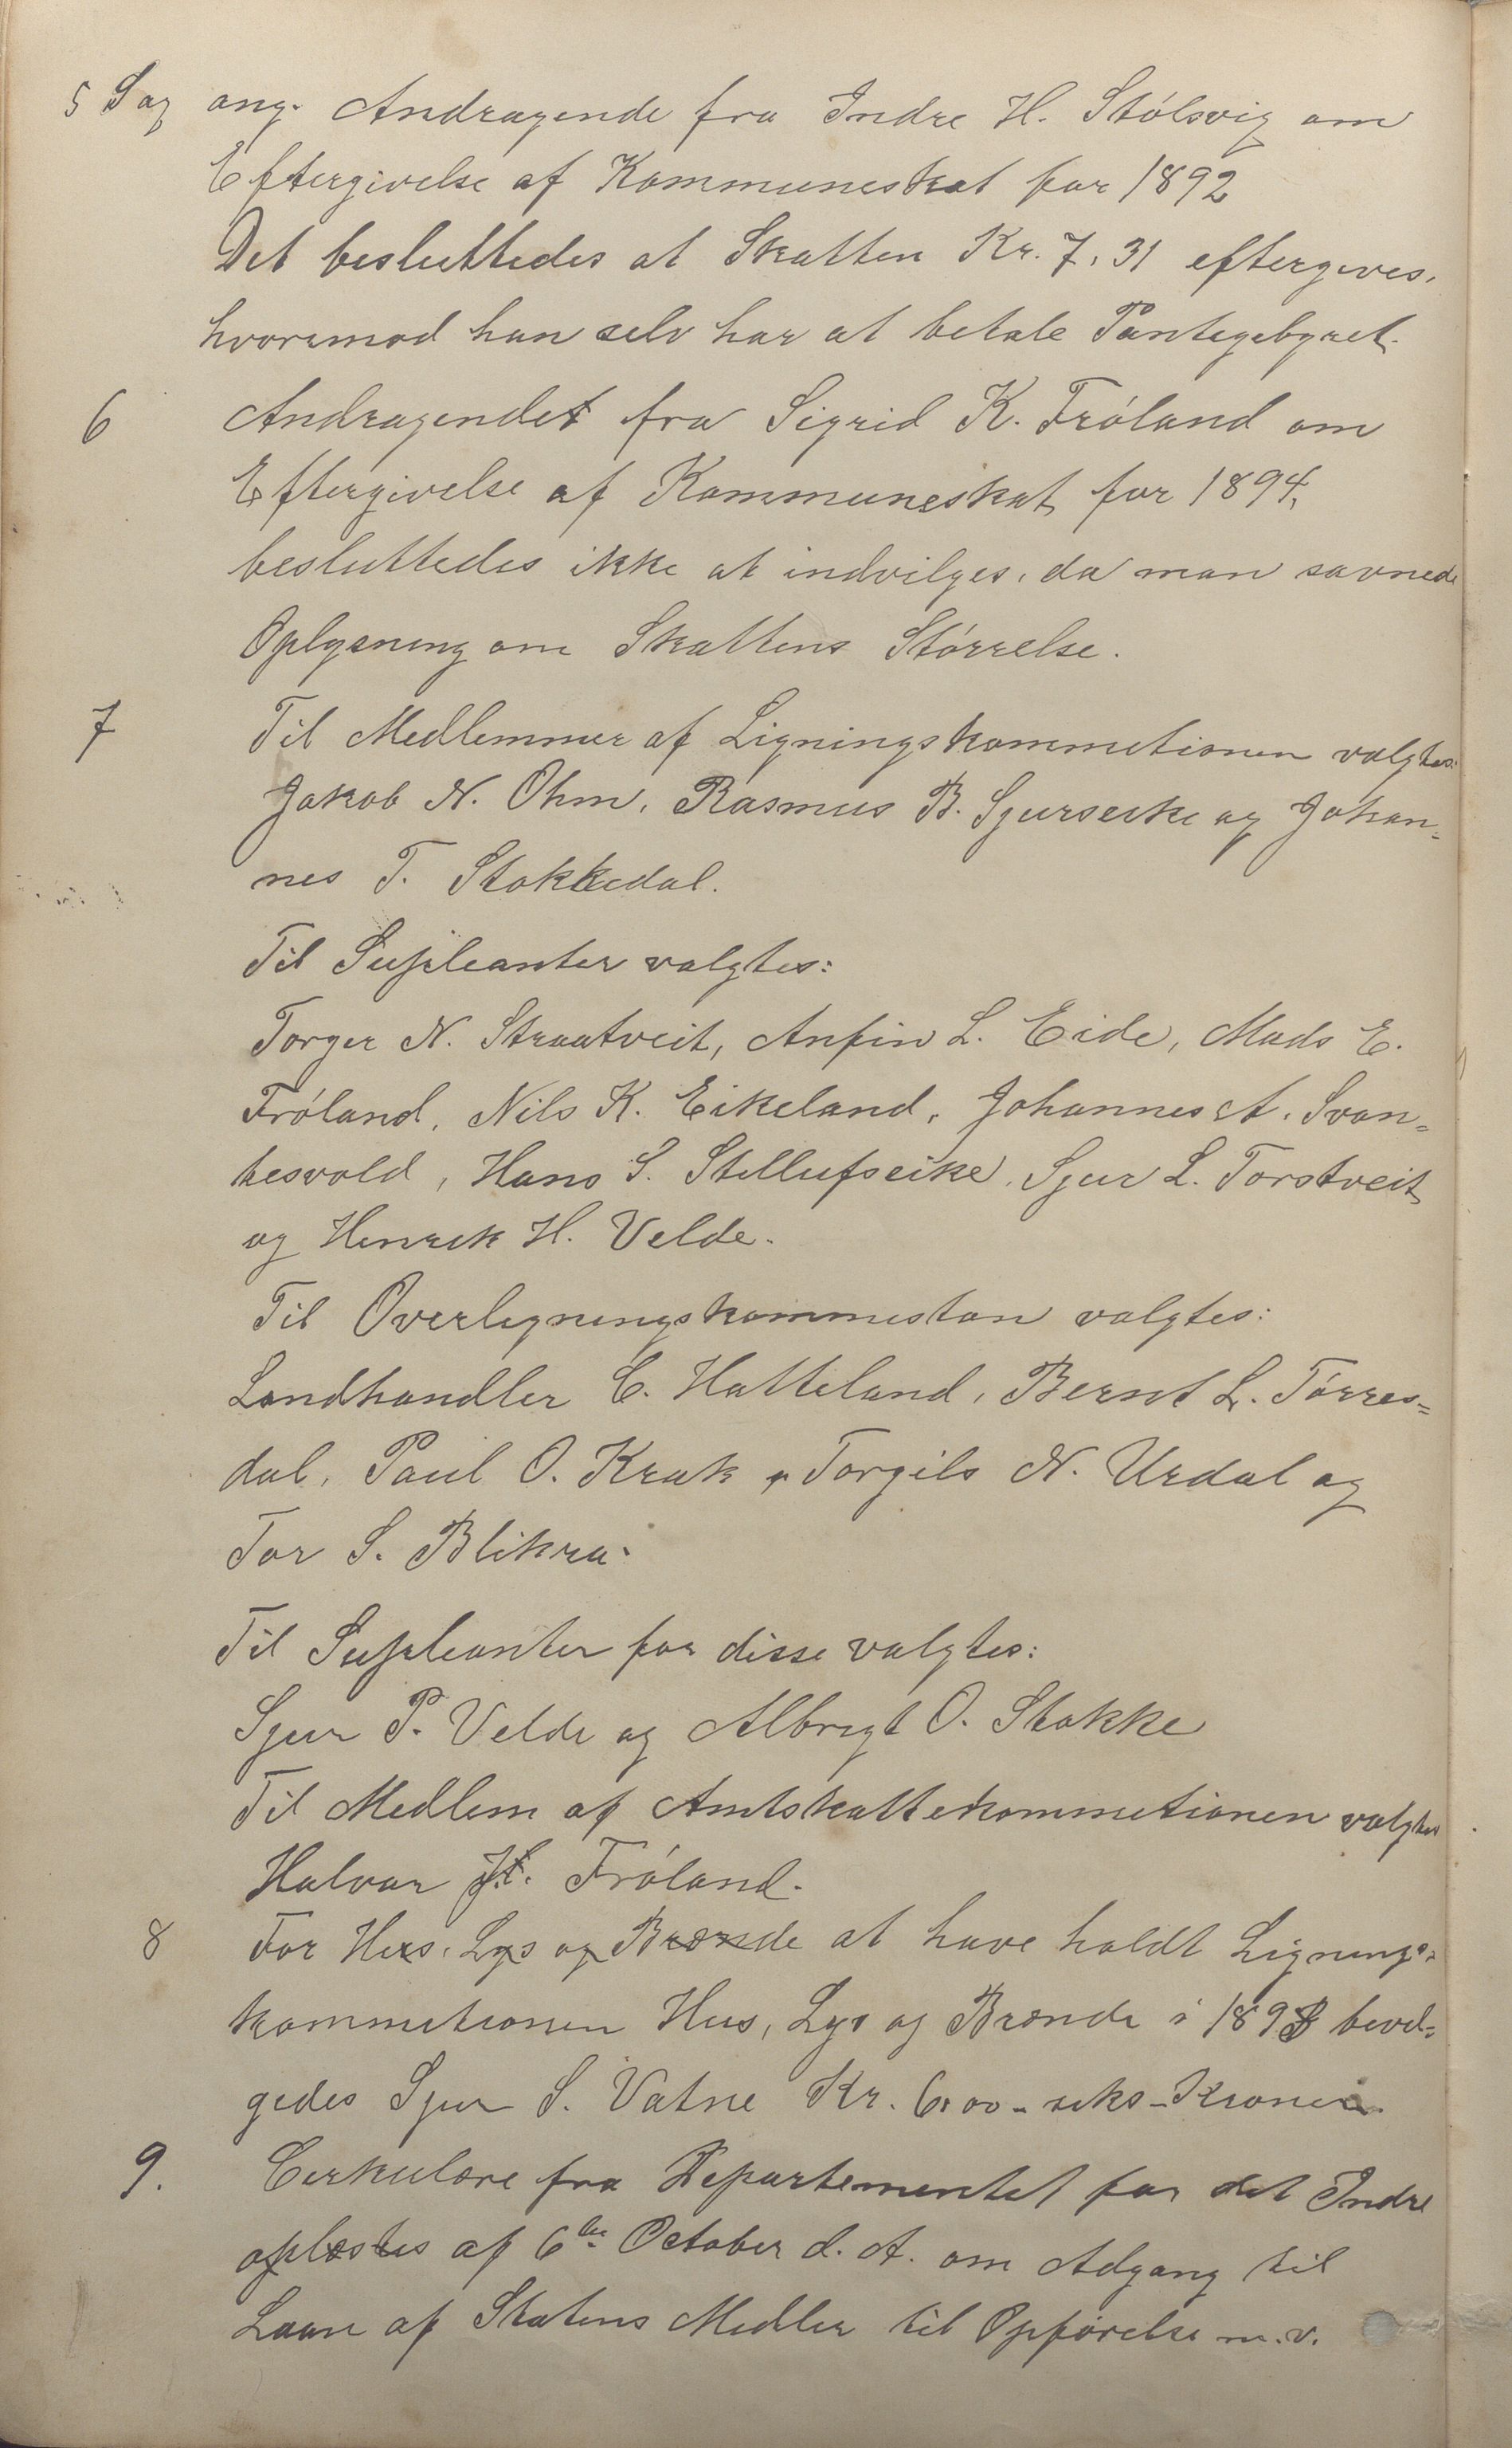 5 Sag ang. Andragende fra Indre H. Stólsvig om
Eftergivelse af Kommuneskat for 1892
Det besluttedes at Skatten Kr. 7,31 eftergives,
hvorimod han selv har at betale Pantegebyret.
6 Andragendet fra Sigrid K. Fróland om
Eftergivelse af Kommuneskat for 1894,
besluttedes ikke at indvilges, da man savnede
Oplysning om Skattens Stórrelse.
7 Til Medlemmer af Ligningskommetionen valgtes:
Jakob N. Ohm, Rasmus B. Sjurseike og Johan-
nes T. Stokkedal.
Til Supleanter valgtes:
Torger N. Straatveit, Anfin L. Eide, Mads E.
Fróland, Nils K. Eikeland, Johannes A. Svan=
desvold, Hans S. Stellufseike, Sjur L. Torstveit
og Henrik H. Velde.
Til Overligningskommiston valgtes:
Landhandler C. Hatteland, Bernt L. Tórres=
dal, Paul O. Krak, Torgils N. Urdal og
Tor S. Blikra.
Til Supleanter for disse valgtes:
Sjur P. Velde og Albrigt O. Stakke
Til Medlem af Amtskattekommetionen valgtes
Halvar H. Fróland.
8 For Hus, Lys og Brænde at have holdt Lignings=
kommetionen Hus, Lys og Brænde i 1893 bevil=
gedes Sjur S. Vatne Kr. 6,00 - seks - Kroner.
9. Cirkulære fra Departementet for det Indre
oplæstes af 6te October d. A. om Adgang til
Laan af Statens Medler til Opførelse m.v.